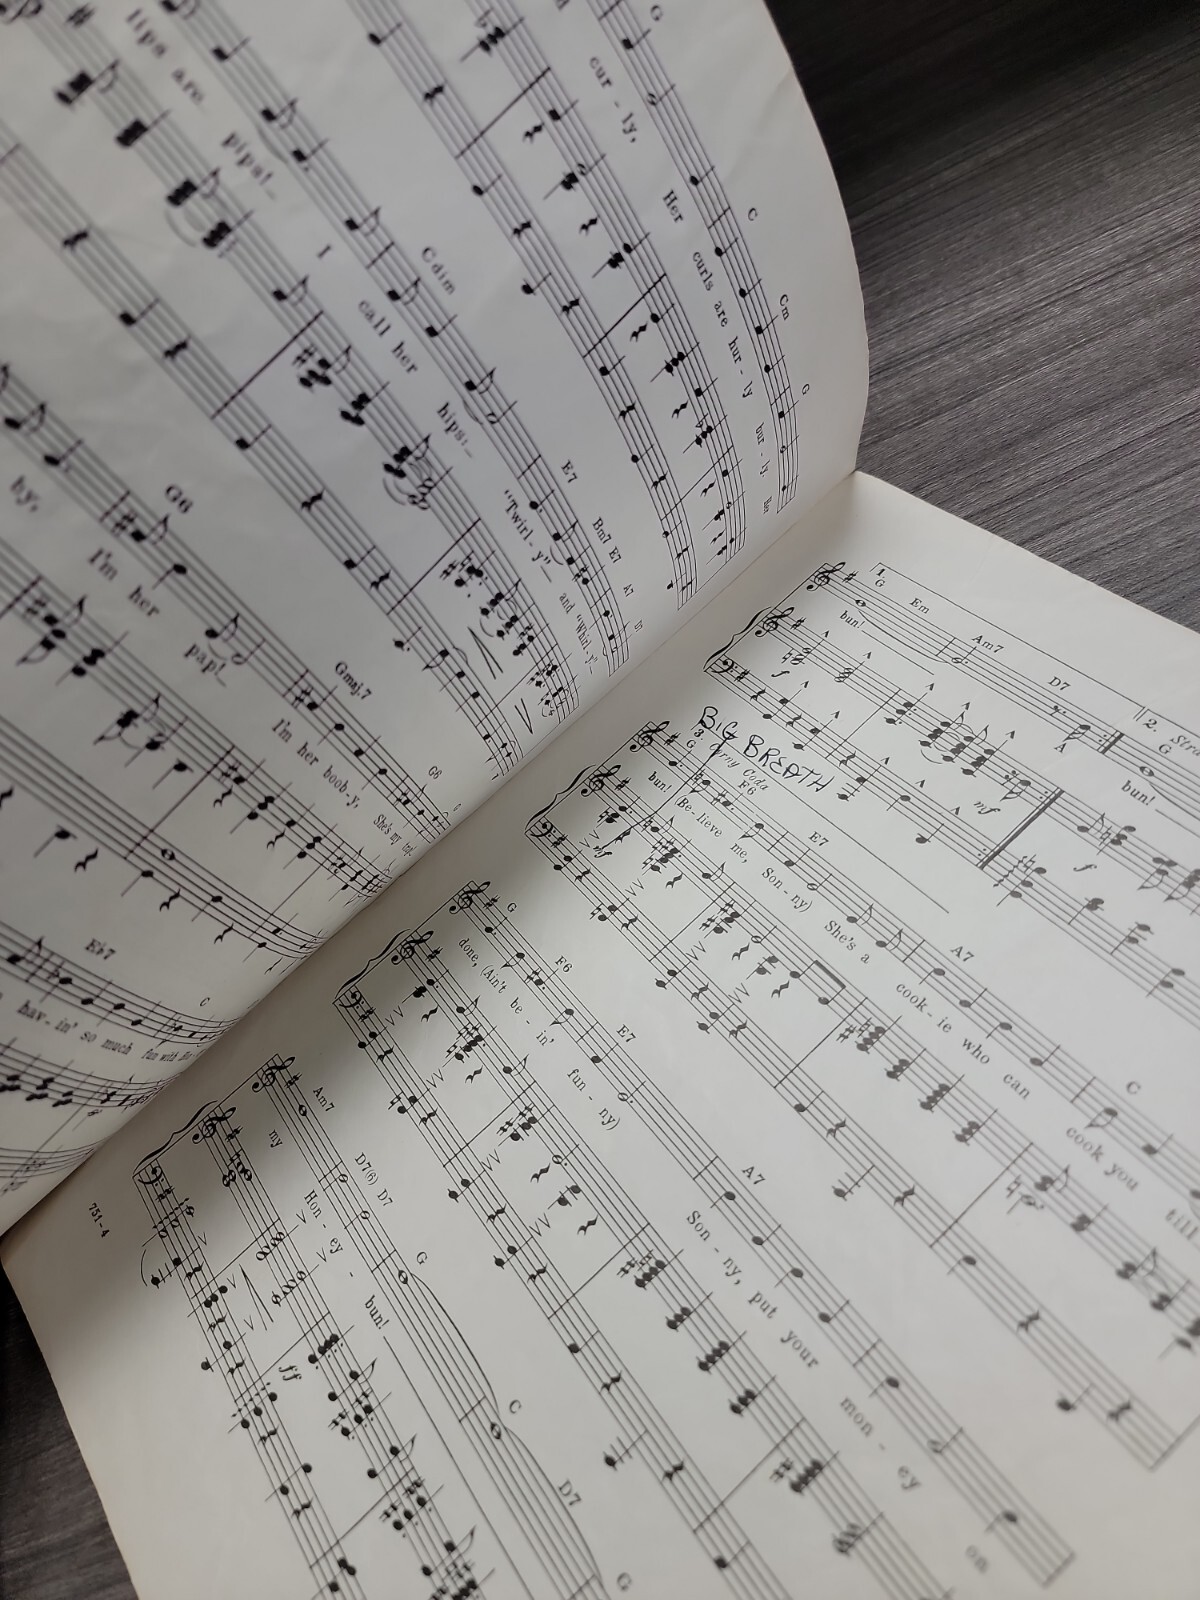 G
cur - ly,
C Cm G
Her curls are hur - ly bur - ly. Her
lips are pips!_ I call her hips:_ "Twirl - y"_ and "Whirl - y"_
Cdim E7 Bm7 E7 A7 D7
G6 Gmaj.7 G6
by, I'm her pap!_ I'm her boob-y, She's my
Eb7 C
hav - in' so much fun with
1.
G Em Am7 D7
bun!
2.
G
bun!
f mf f
BIG BREATH
3. Corny Coda
G F6 E7 A7 C
bun! (Be-lieve me, Son-ny) She's a cook-ie who can cook you till
mf
G F6 E7 A7
done, (Ain't be - in' fun - ny) Son - ny, put your mon - ey on
Am7 D7(6) D7 G C D7 G
my Hon - ey - bun!
ff
751-4